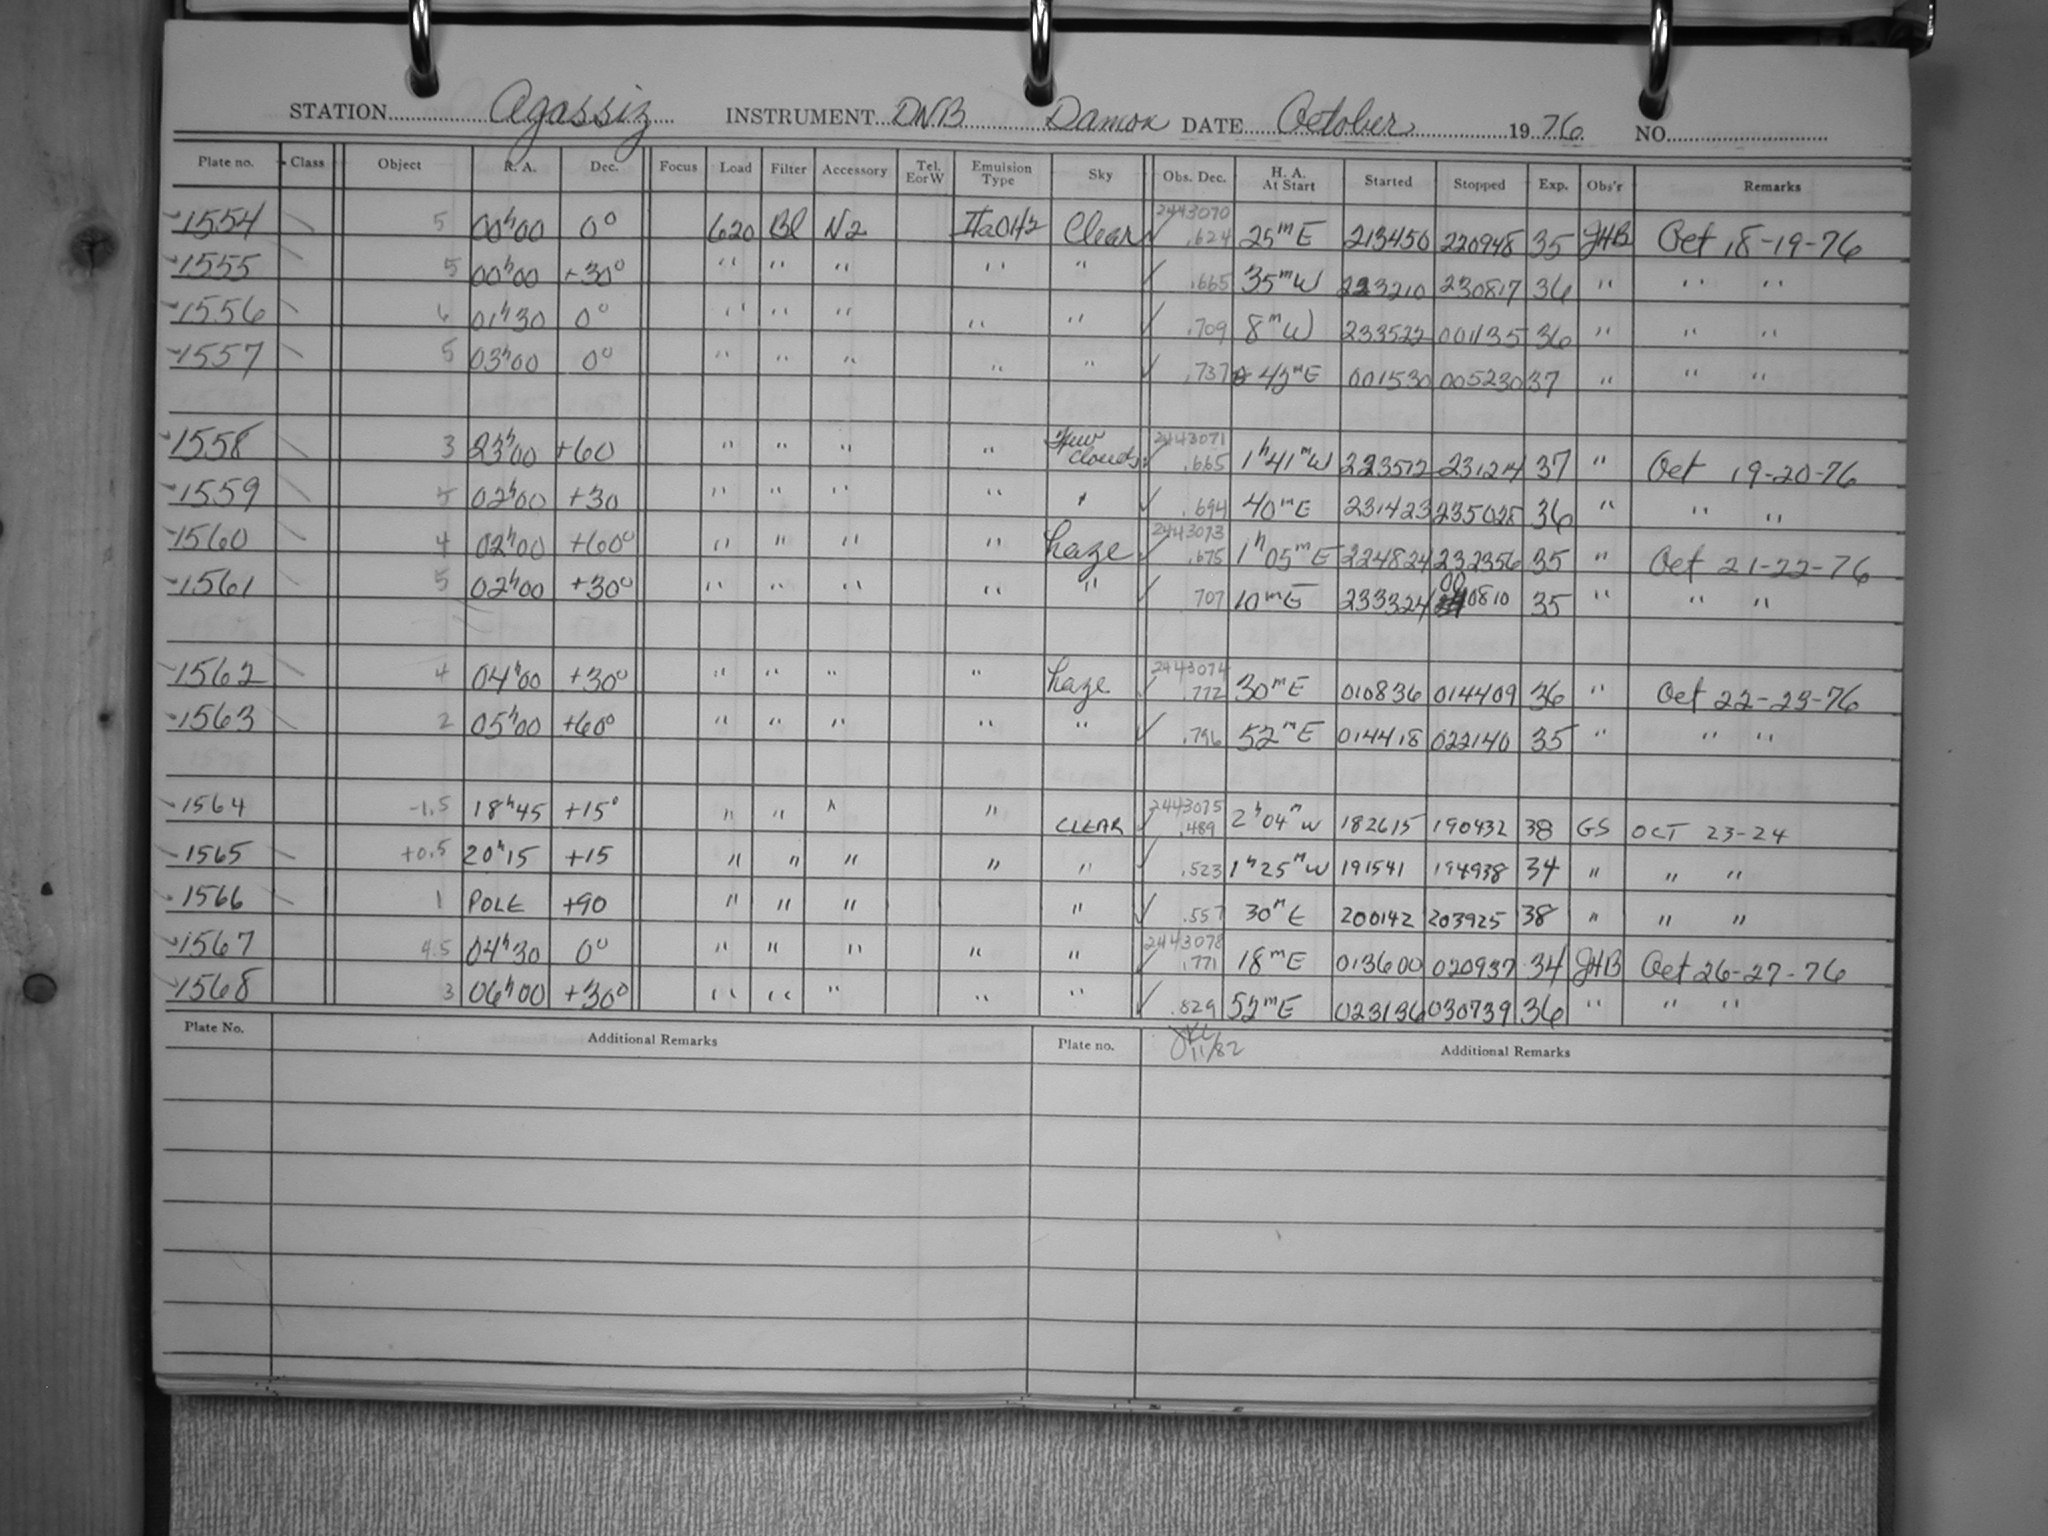 STATION Agassiz INSTRUMENT DNB Damon DATE October 19 76 NO.
Plate no. Class Object R. A. Dec. Focus Load Filter Accessory Tel. E or W Emulsion Type Sky Obs. Dec. H. A. At Start Started Stopped Exp. Obs'r Remarks
1554 5 00h00 0° 620 Bl N2 IIaOH2 Clear 2443070 .624 25m E 213450 220948 35 JHB Oct 18-19-76
1555 5 00h00 +30° " " " " " .665 35m W 223210 230817 36 " " "
1556 6 01h30 0° " " " " " .709 8m W 233522 001135 36 " " "
1557 5 03h00 0° " " " " " .737 45m E 001530 005230 37 " " "
1558 3 23h00 +60 " " " " few clouds 2443071 .665 1h41m W 223512 231214 37 " Oct 19-20-76
1559 5 02h00 +30 " " " " " .694 40m E 231423 235028 36 " " "
1560 4 02h00 +60° " " " " haze 2443073 .675 1h05m E 224824 232356 35 " Oct 21-22-76
1561 5 02h00 +30° " " " " " 707 10m E 233324 000810 35 " " "
1562 4 04h00 +30° " " " " haze 2443074 .772 30m E 010836 014409 36 " Oct 22-23-76
1563 2 05h00 +60° " " " " " .796 52m E 014418 022140 35 " " "
1564 -1.5 18h45 +15° " " " " CLEAR 2443075 .489 2h04m W 182615 190432 38 GS OCT 23-24
1565 +0.5 20h15 +15 " " " " " .523 1h25m W 191541 194938 34 " " "
1566 1 POLE +90 " " " " .557 30m E 200142 203925 38 " " "
1567 4.5 04h30 0° " " " " " 2443078 .771 18m E 013600 020937 34 JHB Oct 26-27-76
1568 3 06h00 +30° " " " " " .829 52m E 023136 030739 36 " " "
Plate No. Additional Remarks Plate no. 11/82 Additional Remarks